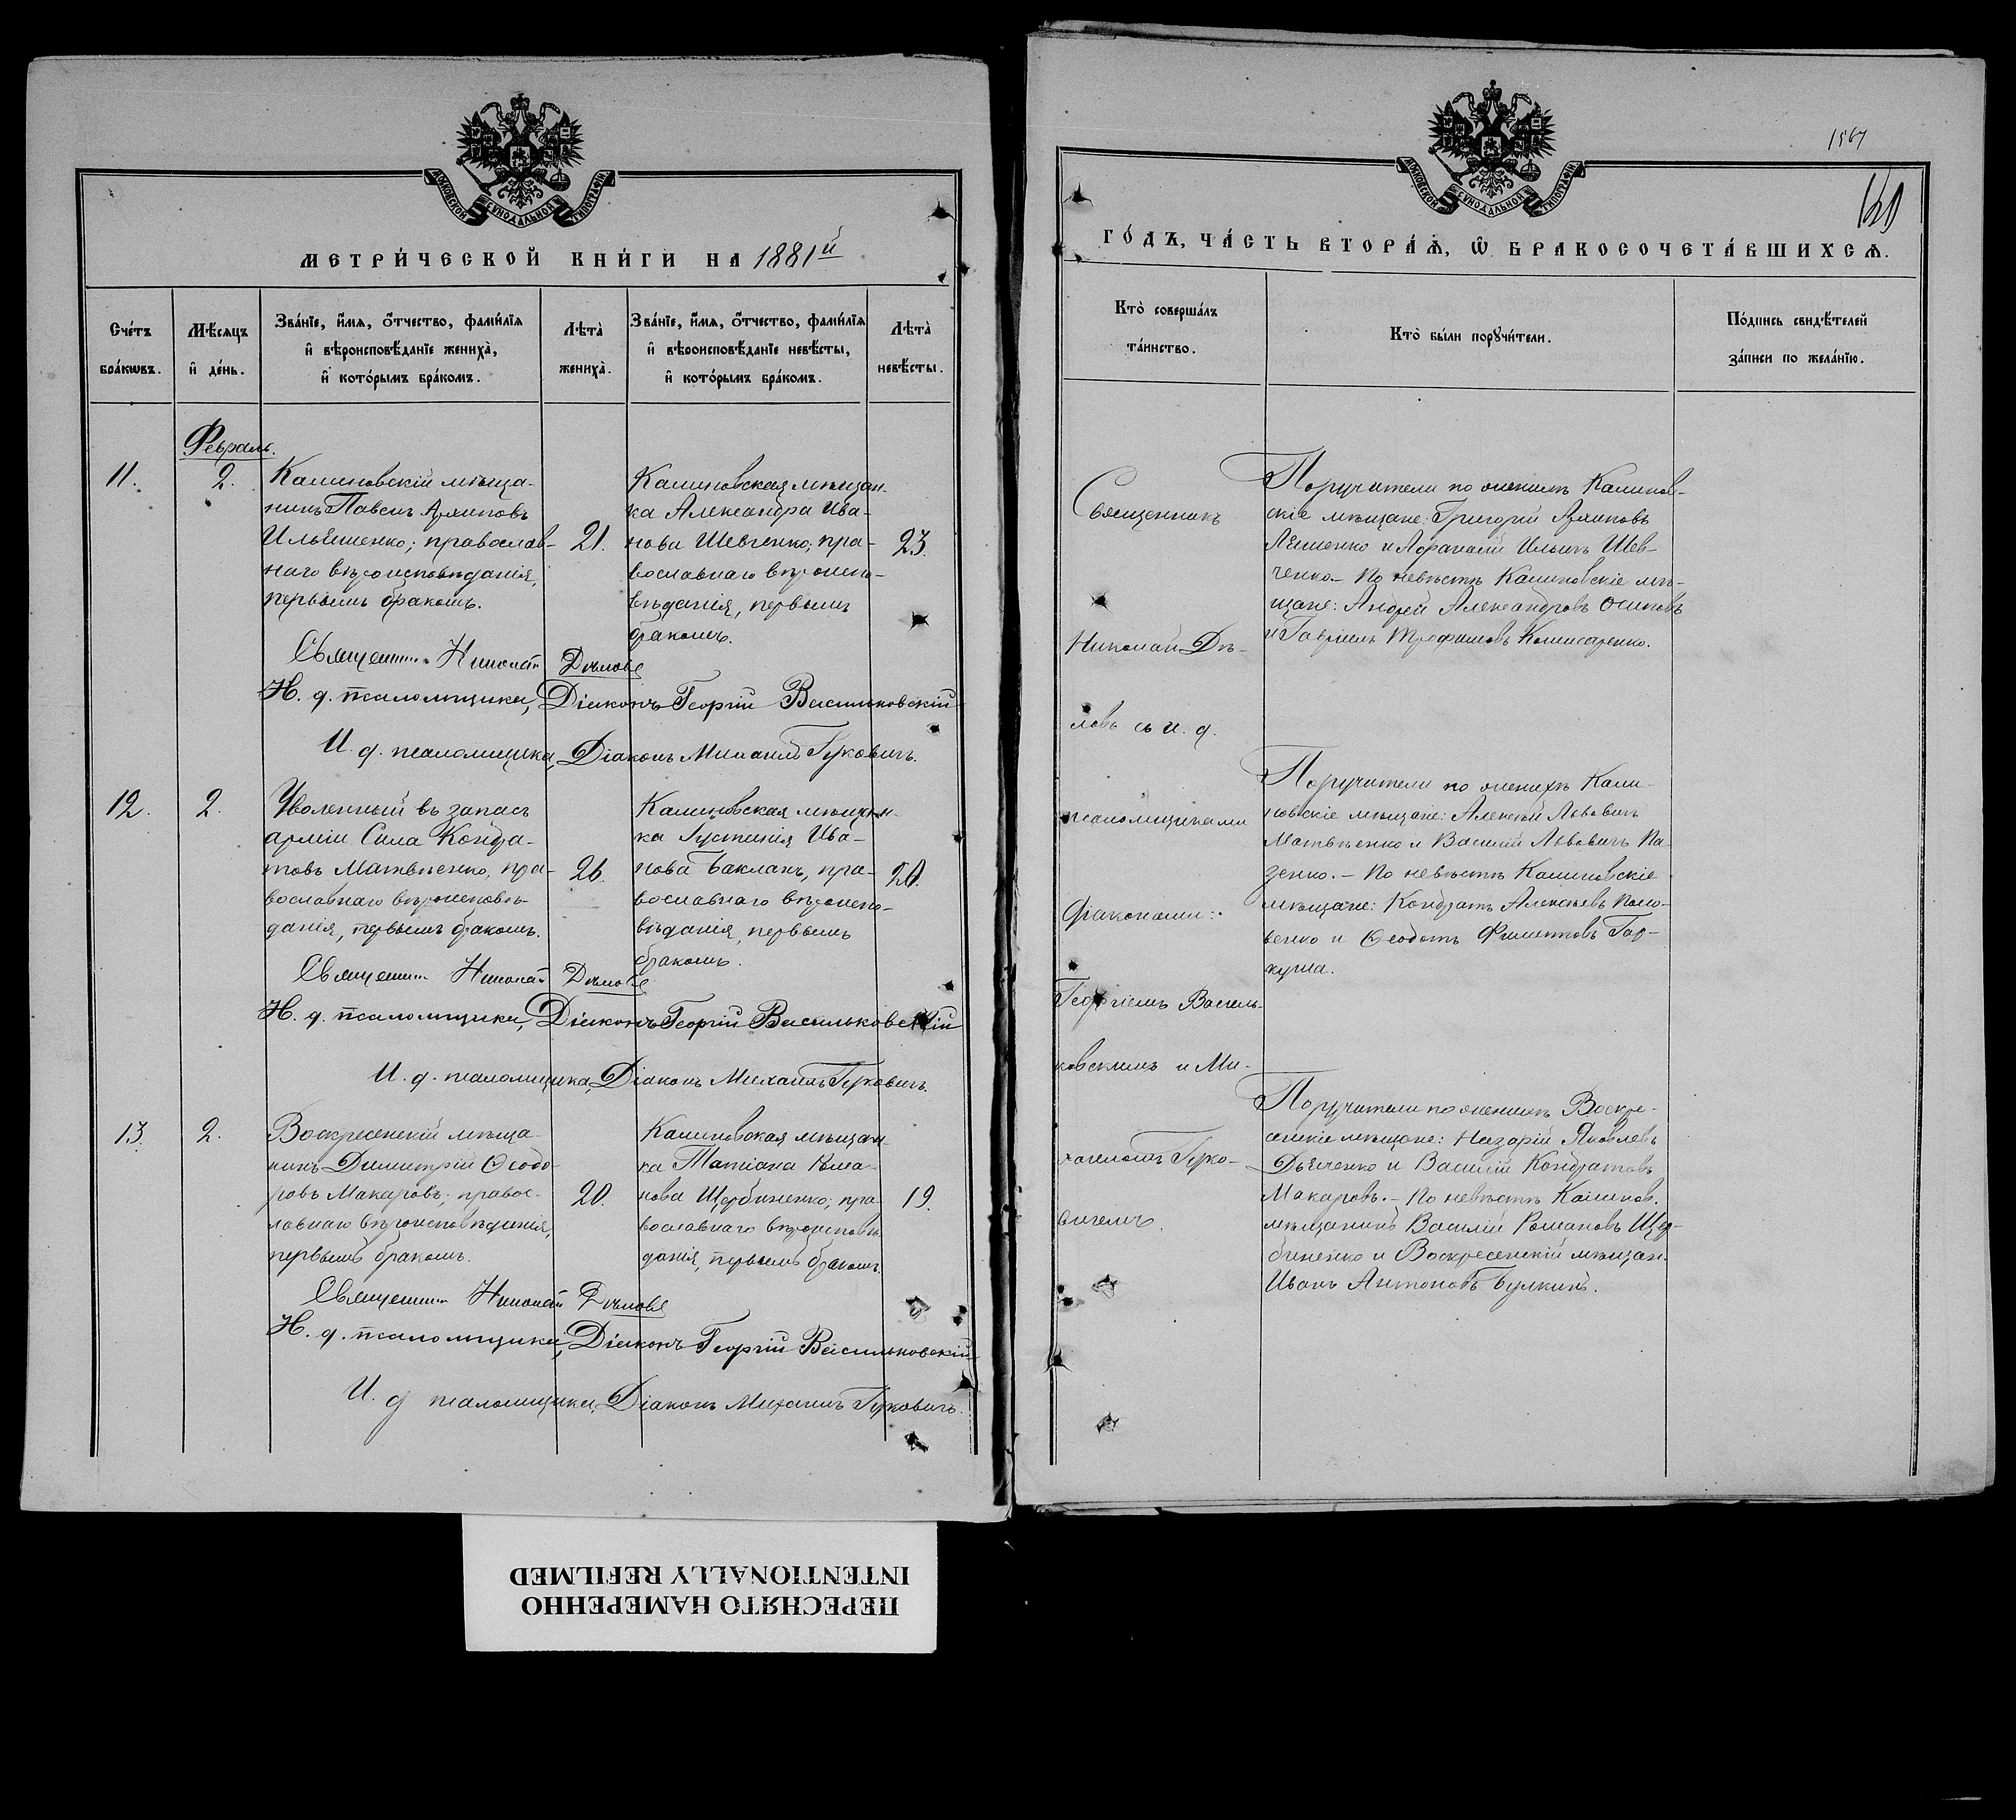 МОСКОВСКОЙ СУНОДАЛЬНОЙ ТИПОГРАФІИ
МЕТРИ́ЧЕСКОЙ КНИ́ГИ НА 1881й
Сче́тъ бра́кѡвъ.
Мѣ́сяцъ и҆ де́нь.
Зва́нїе, и҆́мѧ, ѻ҆́тчество, фами́лїѧ
и҆ вѣроисповѣ́данїе жениха̀,
и҆ кото́рымъ бра́комъ.
Лѣта̀ жениха̀.
Зва́нїе, и҆́мѧ, ѻ҆́тчество, фами́лїѧ
и҆ вѣроисповѣ́данїе невѣ́сты,
и҆ кото́рымъ бра́комъ.
Лѣта̀ невѣ́сты.
Февраль.
11.
2.
Калиновскій мѣща-
нинъ Павелъ Архиповъ
Ильяшенко; православ-
наго вѣроисповѣданія,
первымъ бракомъ.
21.
Калиновская мѣщан-
ка Александра Ива-
нова Шевченко; пра-
вославнаго вѣроиспо-
вѣданія, первымъ
бракомъ.
23.
Священник Николай Дѣловъ
И. д. псаломщика, Діаконъ Георгій Васильковскій
И. д. псаломщика, Діаконъ Михаилъ Гуковичъ.
12.
2.
Уволенный въ запасъ
арміи Сила Кондра-
товъ Матвѣенко, пра-
вославнаго вѣроисповѣ-
данія, первымъ бракомъ.
26.
Калиновская мѣщан-
ка Іустинія Ива-
нова Бакланъ, пра-
вославнаго вѣроиспо-
вѣданія, первымъ
бракомъ.
20.
Священник Николай Дѣловъ
И. д. псаломщика, Діаконъ Георгій Васильковскій
И. д. псаломщика, Діаконъ Михаилъ Гуковичъ.
13.
2.
Воскресенскій мѣща-
нинъ Димитрій Ѳеодо-
ровъ Макаровъ; правос-
лавнаго вѣроисповѣданія,
первымъ бракомъ.
20.
Калиновская мѣщан
ка Татіана Рома-
нова Щербиненко; пра-
вославнаго вѣроисповѣ
данія, первымъ бракомъ.
19.
Священник Николай Дѣловъ
И. д. псаломщика, Діаконъ Георгій Васильковскій
И. д псаломщика, Діаконъ Михаилъ Гуковичъ.
МОСКОВСКОЙ СУНОДАЛЬНОЙ ТИПОГРАФІИ
ГО́ДЪ, ЧА́СТЬ ВТОРА́Ѧ, Ѽ БРАКОСОЧЕТА́ВШИХСѦ.
Кто̀ соверша́лъ
та́инство.
Кто̀ бы́ли порꙋчи́тели.
По́дпись свидѣ́телей
за́писи по жела́нїю.
Священникъ
Николай Дѣ-
ловъ съ и. д.
псаломщиками
діаконами:
Георгіемъ Василь-
ковскимъ и Ми-
хаиломъ Гуко-
вичемъ.
Поручители по женихѣ Калинов-
скіе мѣщане: Григорій Архиповъ
Ляшенко и Афанасій Ильичъ Шев-
ченко. По невѣстѣ Калиновскіе мѣ-
щане: Андрей Александровъ Осиповъ
и Гавріилъ Трофимовъ Комисаренко.
Поручители по женихѣ Кали-
новскіе мѣщане: Алексѣй Львовичъ
Матвѣенко и Василій Львовичъ Ла-
зенко. - По невѣстѣ Калиновскіе
мѣщане: Кондратъ Алексѣевъ
и Ѳеодотъ Гар-
куша.
Поручители по женихѣ Воскре-
сенскіе мѣщане: Назарій Яковлевъ
Дьяченко и Василій Кондратовъ
Макаровъ. - По невѣстѣ Калинов.
мѣщанинъ Василій Романовъ Щер-
биненко и Воскресенскій мѣщан.
Иванъ Антоновъ Булкинъ.
ПЕРЕСНЯТО НАМЕРЕННО
INTENTIONALLY REFILMED